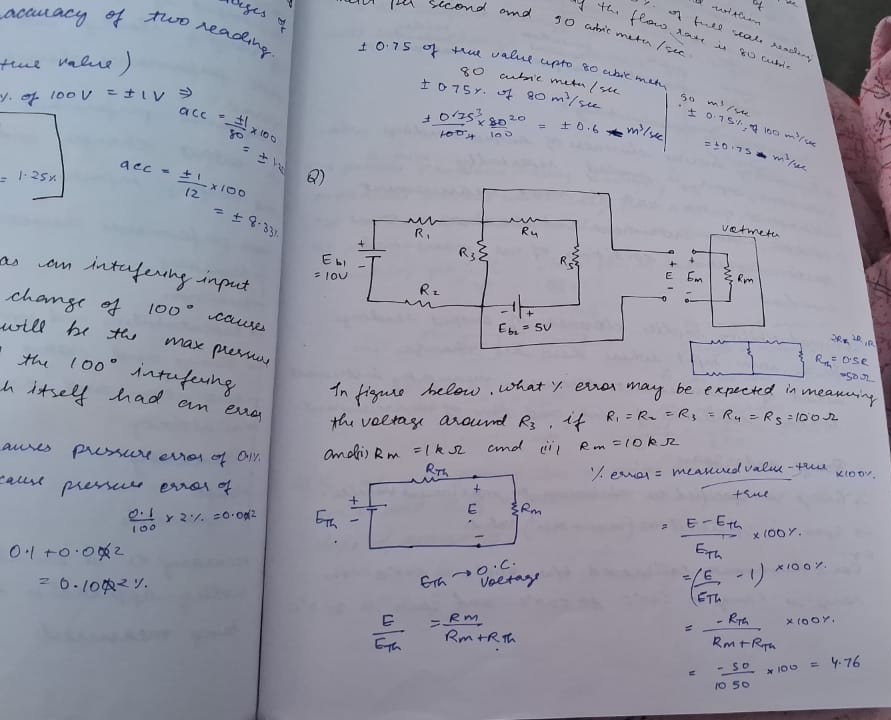 accuracy of two reading.
true value)
% of 100V = ±1V ⇒
acc = ±1/80 × 100
acc = ±1/12 × 100
= 1.25%
= ± 8.33%
as an intefering input
change of 100° causes
will be the max pressure
the 100° intefering
itself had an error
pressure error of 0.1%
cause pressure error of
0.1/100 × 2% = 0.002
0.1 + 0.002
= 0.1002%
per second and
of full scale reading
the flow rate is 80 cubic
90 cubic meter/sec.
± 0.75 of true value upto 80 cubic mete
80 cubic meter/sec
± 0.75% of 80 m³/sec
= ± 0.6 m³/sec
90 m³/sec
± 0.75% of 100 m³/sec
= ± 0.75 m³/sec
Q)
R1
R4
R3
R5
Eb1
= 10V
R2
Eb2 = 5V
+
-
E
Em
Rm
2R, 2R, R
= 0.5R
= 50Ω
In figure below, what % error may be expected in measuring
the voltage around R3, if R1 = R2 = R3 = R4 = R5 = 100Ω
and (i) Rm = 1kΩ and (ii) Rm = 10kΩ
RTh
ETh
+
-
E
Rm
ETh → O.C. Voltage
E/ETh = Rm/(Rm + RTh)
% error = measured value - true / true × 100%
= (E - ETh)/ETh × 100%
= (E/ETh - 1) × 100%
= -RTh/(Rm + RTh) × 100%
= -50/1050 × 100 = 4.76